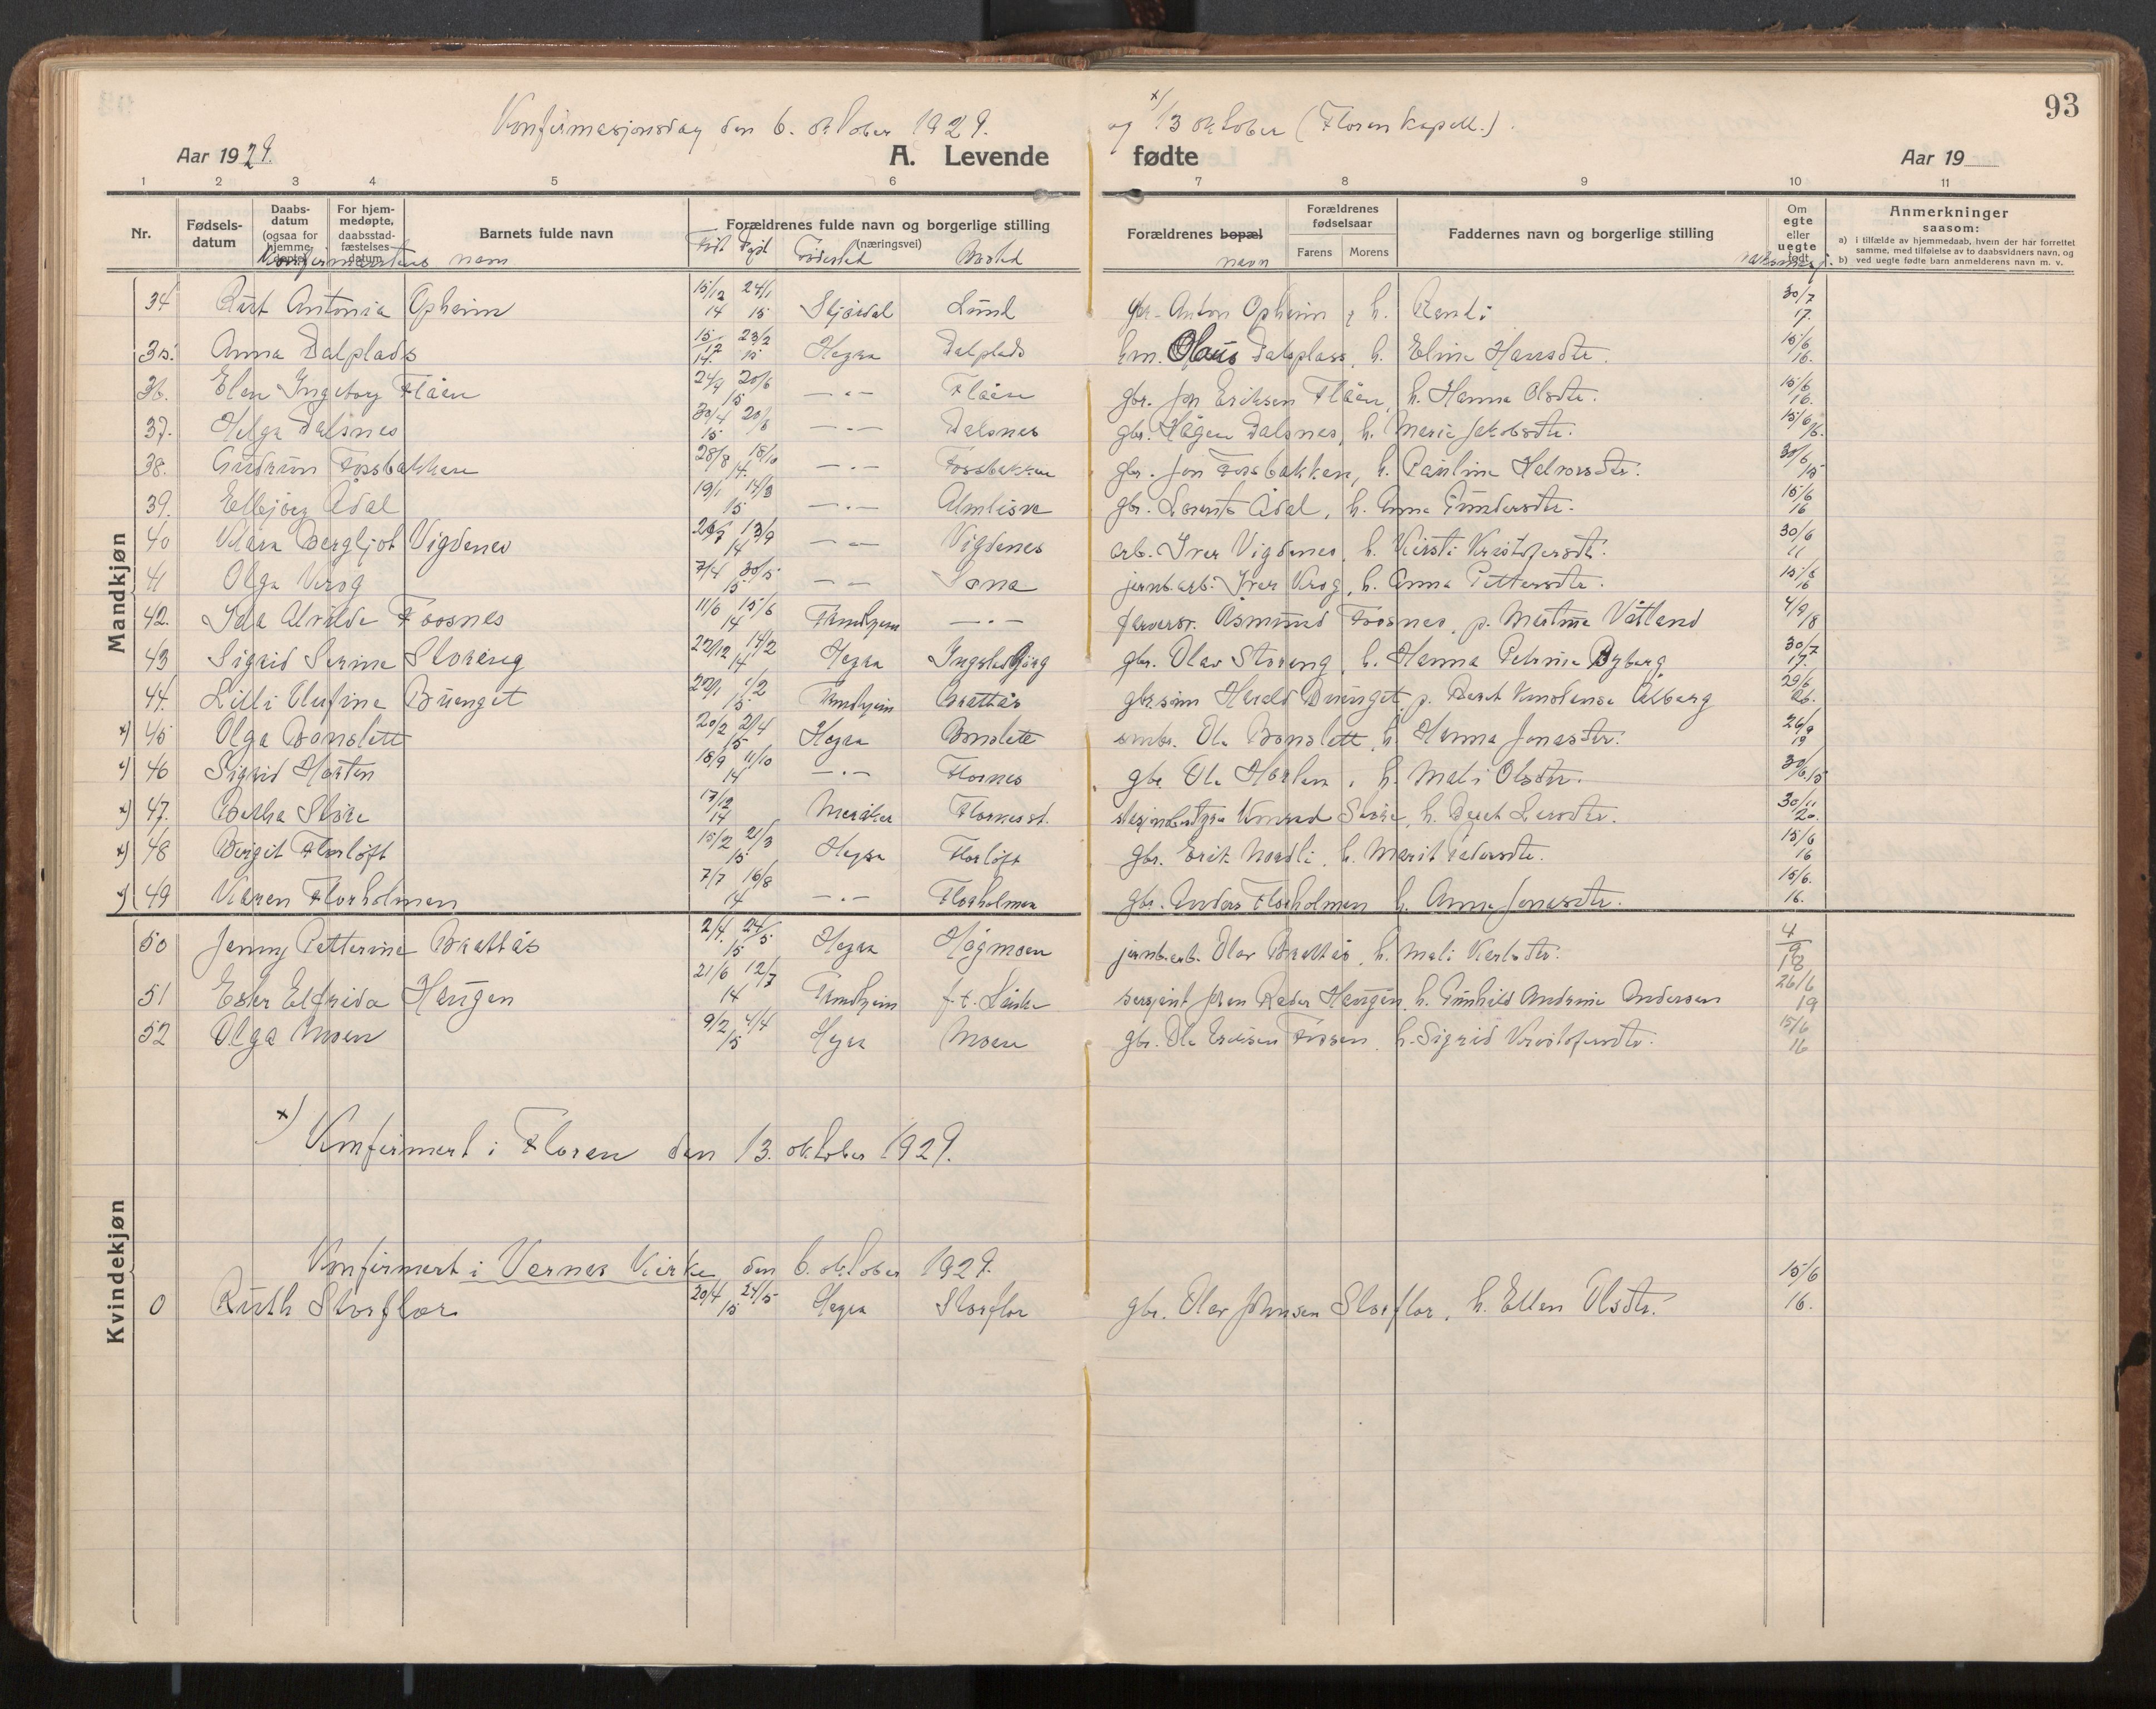 93
Konfirmasjonsdag den 6. oktober 1929. og x) 13 oktober (Floren kapell.).
Aar 1929. A. Levende fødte Aar 19
1 2 3 4 5 6 7 8 9 10 11
Nr. Fødsels-datum Daabs-datum (ogsaa for hjemme-døpte) For hjem-medøpte, daabsstad-fæstelses-datum Barnets fulde navn Forældrenes fulde navn og borgerlige stilling (næringsvei) Forældrenes bopæl Forældrenes fødselsaar Farens Morens Faddernes navn og borgerlige stilling Om egte eller uegte født Anmerkninger saasom:
a) i tilfælde av hjemmedaab, hvem der har forrettet samme, med tilføielse av to daabsvidners navn, og
b) ved uegte fødte barn anmelderens navn m. v.
Konfirmantens navn Født Døpt Fødested Bosted navn
Mandkjøn
34 Rut Antonia Opheim 15/12 14 24/1 15 Stjørdal Lund gbr. Anton Opheim h. Randi 30/7 17.
35. Anna Dalplads 15/12 14. 23/2 15 Hegra Dalplads hm. Olaus Dalsplass, h. Eline Hansdtr. 15/6 16.
36. Elen Ingeborg Flåen 24/4 20/6 15 —"— Flåen gbr. Jon Eriksen Flåen, h. Hanna Olsdtr. 15/6 16.
37. Helga Dalsnes 30/4 20/6 15 —"— Dalsnes gbr. Hågen Dalsnes, h. Marie Jakobsdtr. 15/6 16.
38. Gudrun Fossbakken 28/8 18/10 14. —"— Fossbakken gbr. Jon Fossbakken, h. Pauline Halvorsdtr. 30/6 15
39. Elbjørg Ådal 19/1 14/3 15 —"— Almlisve gbr. Lorents Ådal, h. Anna Gundersdtr. 15/6 16
40 Klara Bergljot Vigdenes 13/9 14 —"— Vigdenes arb. Iver Vigdenes, h. Kirsti Kristofersdt. 30/6 11
41 Olga Krog 7/4 30/5 15 —"— Sona jernb.arb. Iver Krog, h. Anna Pettersdtr. 15/6 16
42. Ida Alvilde Foosnes 11/6 15/6 14 Trondhjem —"— Åsmund Foosnes, p. Martine Våtland 4/9 18
43 Sigrid Serine Storeng 22/12 14/2 14 Hegra gbr. Olav Storeng, h. Hanna Petrine Byberg 30/7 17.
44. Lilli Olufine Buenget 1/2 15 Trondhjem Brattås gbr.sønn Harald Buenget, p. Beret Konstense Ålberg 29/6
x) 45 Olga Bonslett 20/2 2/4 15 Hegra Bonslett smbr. Ole Bonslett, h. Hanna Jonasdtr. 26/9 19
x) 46 Sigrid Harten 18/9 11/10 14 —"— Flornes gbr. Ole Harten, h. Mali Olsdtr. 30/6 15
x) 47. Bertha Støre 17/12 14 Meråker Flornes st. Konrad Støre, h. Beret Larsdtr. 30/11 20.
x) 48 Bergit Florløft 15/2 21/3 15 Hegra Florløft gbr. Erik Nordli, h. Marit Pedersdtr. 15/6 16
x) 49 Karen Florholmen 7/7 16/8 14 —"— Florholmen gbr. Anders Florholmen h. Anna Jonasdtr. 15/6. 16.
50 Jenny Petterine Brattås 2/4. 24/5 15 Hegra Høgmoen jernb.arb. Olav Brattås, h. Mali Karlsdtr. 4/9 18
51 Ester Elfrida Haugen 21/6 12/7 14 Trondhjem f.t. Leirås sersjant Johan Peder Haugen, h. Gunhild Andrine Andersen 26/6 19
52 Olga Moen 9/2 4/4 15 Hegra Moen gbr. Ole Eriksen Fossen, h. Sigrid Kristofersdtr. 15/6 16
x) Konfirmert i Floren den 13. oktober 1929.
Kvindekjøn
Konfirmert i Vernes Kirke den 6. oktober 1929.
0 Ruth Storflor 20/4 24/5 15 Hegra Storflor gbr. Olav Johnsen Storflor, h. Ellen Olsdtr. 15/6 16.